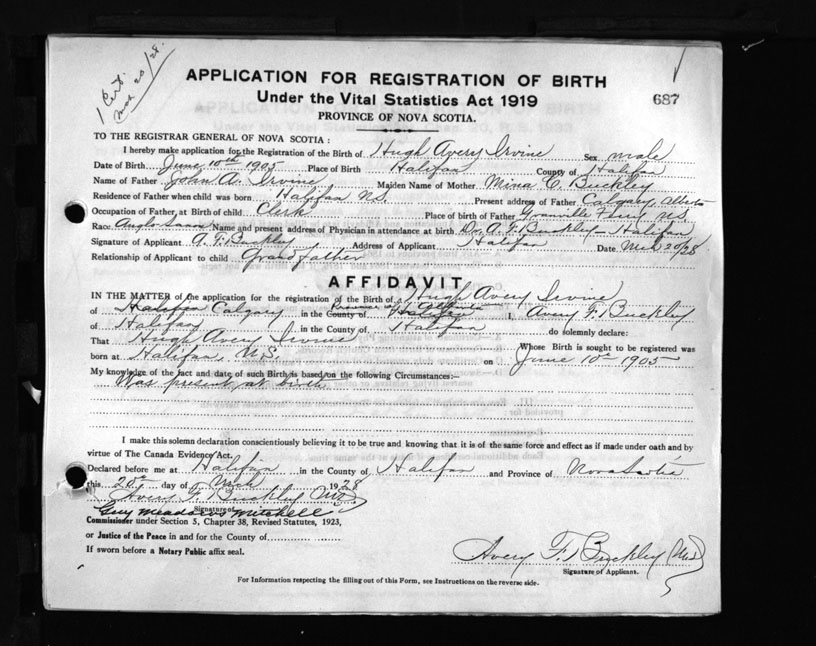 1 Cert.
Mch 20/28.
APPLICATION FOR REGISTRATION OF BIRTH
Under the Vital Statistics Act 1919
687
PROVINCE OF NOVA SCOTIA.
TO THE REGISTRAR GENERAL OF NOVA SCOTIA:
I hereby make application for the Registration of the Birth of Hugh Avery Irvine Sex male
Date of Birth June 10th 1905 Place of Birth Halifax County of Halifax
Name of Father John A. Irvine Maiden Name of Mother Mina C. Buckley
Residence of Father when child was born Halifax N.S. Present address of Father Calgary, Alberta
Occupation of Father, at Birth of child Clerk Place of birth of Father Granville Ferry N.S.
Race Anglo Saxon Name and present address of Physician in attendance at birth Dr. A. F. Buckley Halifax
Signature of Applicant A. F. Buckley Address of Applicant Halifax Date Mch 20/28
Relationship of Applicant to child Grandfather
AFFIDAVIT
IN THE MATTER of the application for the registration of the Birth of Hugh Avery Irvine
of Halifax Calgary in the County of Province of Halifax I, Avery F. Buckley
of Halifax in the County of Halifax do solemnly declare:
That Hugh Avery Irvine Whose Birth is sought to be registered was
born at Halifax, N.S. on June 10th 1905
My knowledge of the fact and date of such Birth is based on the following Circumstances:—
Was present at birth
I make this solemn declaration conscientiously believing it to be true and knowing that it is of the same force and effect as if made under oath and by
virtue of The Canada Evidence Act.
Declared before me at Halifax in the County of Halifax and Province of Nova Scotia
this 20th day of Mch 1928
Avery F. Buckley MD
Signature of
Guy Meadows Mitchell
Commissioner under Section 5, Chapter 38, Revised Statutes, 1923,
or Justice of the Peace in and for the County of
If sworn before a Notary Public affix seal.
Avery F. Buckley (MD)
Signature of Applicant.
For Information respecting the filling out of this Form, see Instructions on the reverse side.